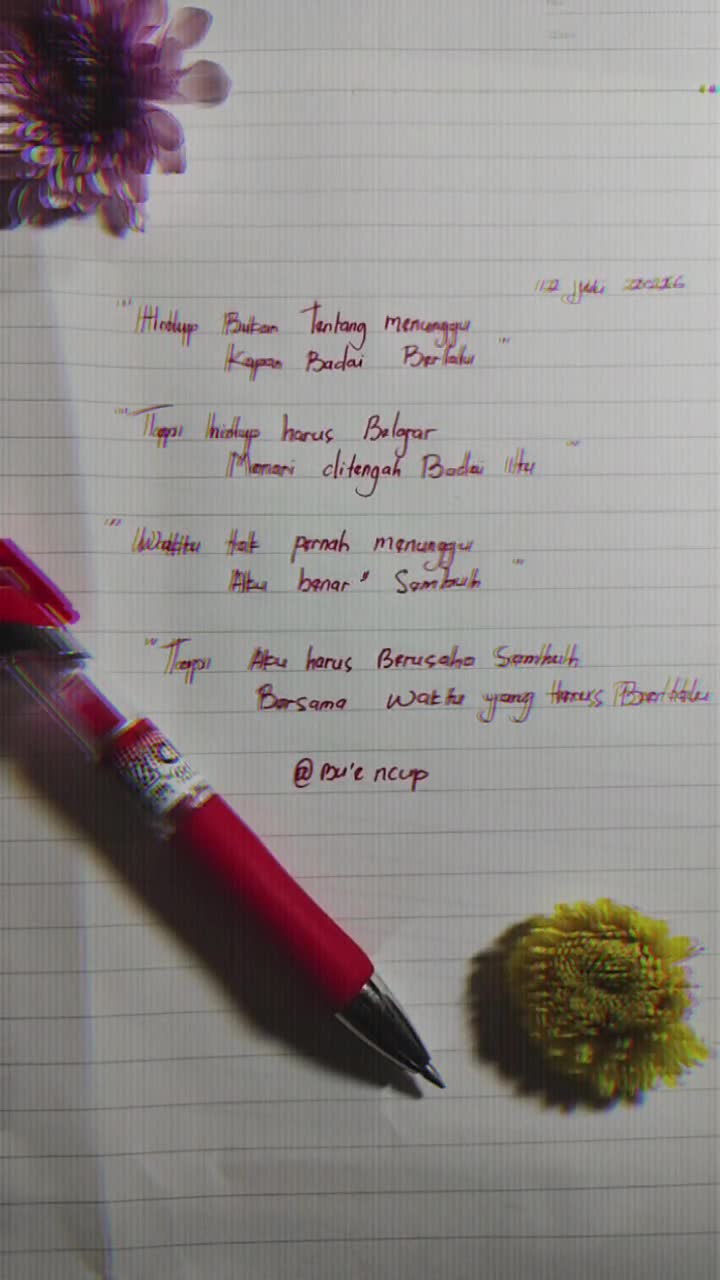 "Hidup Bukan Tentang menunggu
Kapan Badai Berlalu"
"Tapi hidup harus Belajar
Menari ditengah Badai itu"
"Waktu tak pernah menunggu
Aku benar" Sembuh"
"Tapi Aku harus Berusaha Sembuh
Bersama waktu yang Harus Berlalu
@Bu'e ncup